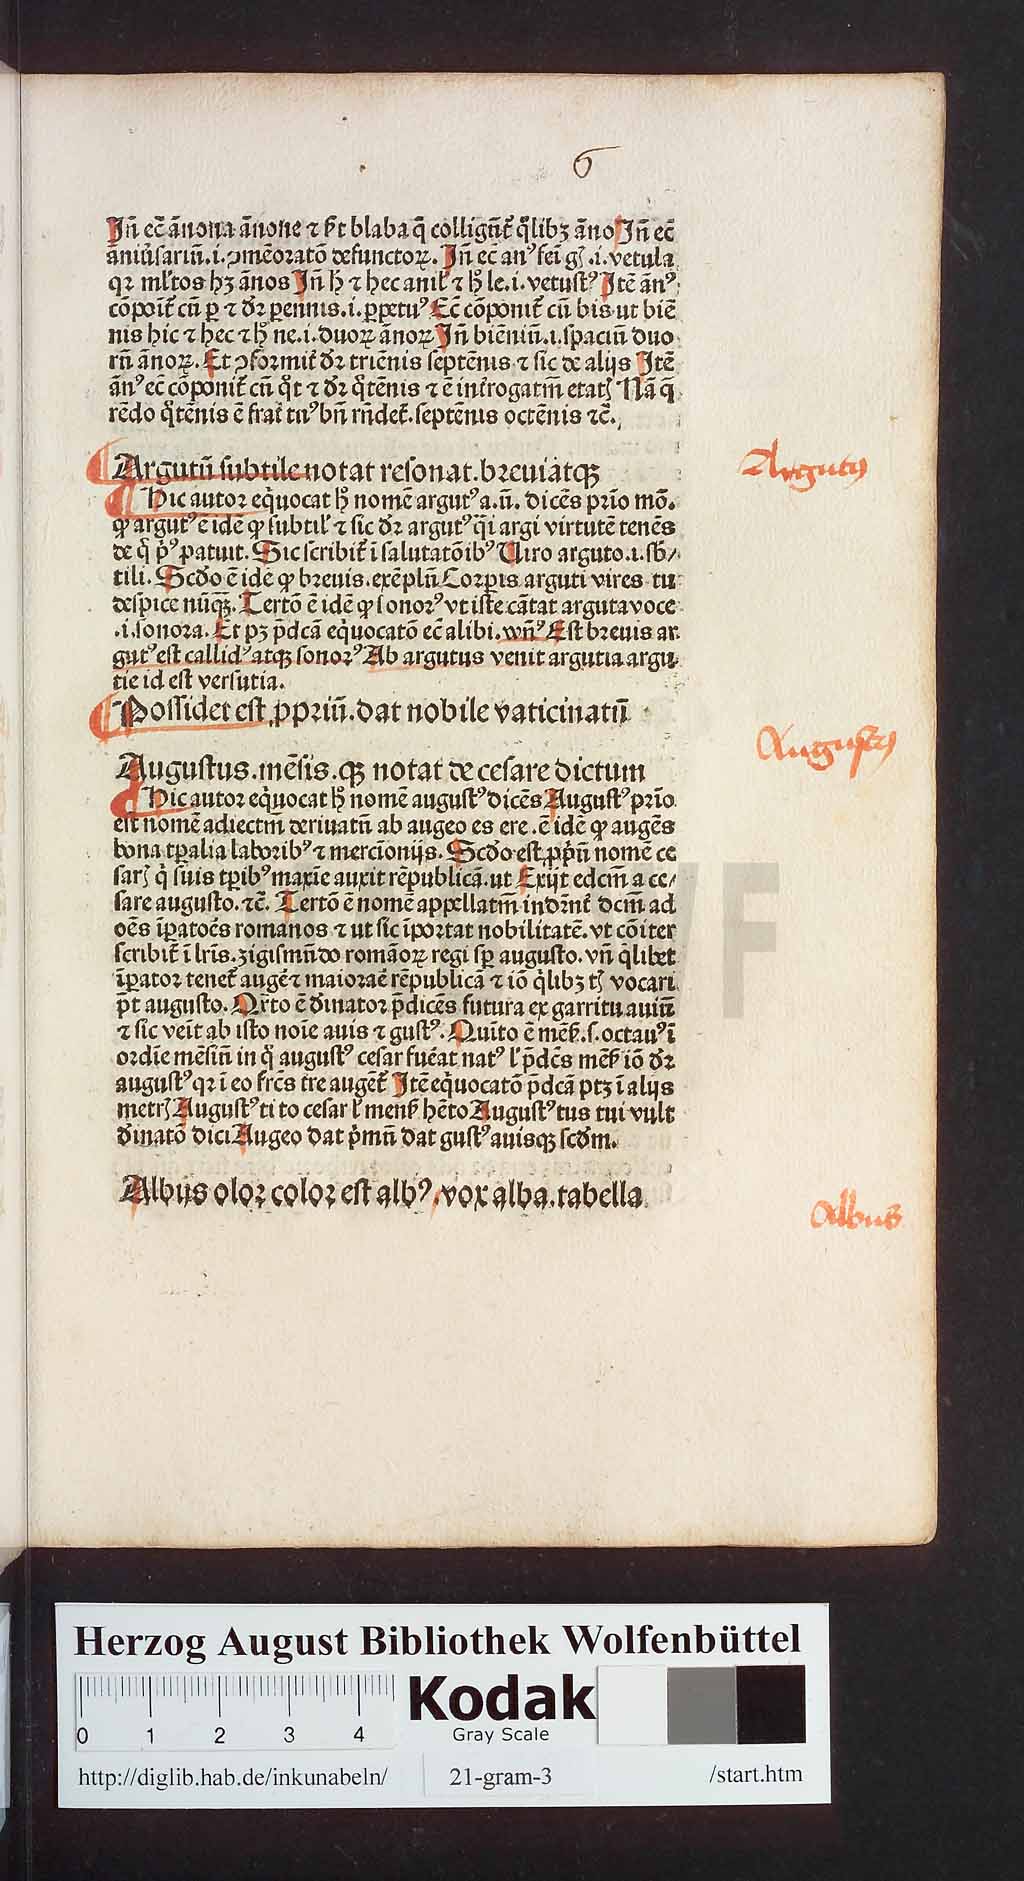 6
Jn̄ ec̄ ānona ānone ⁊ ẜt blaba q̄ collignt̄ ql̄ibꝫ āno Jn̄ ec̄
aniūsariū .i. ꝯmēoratō defunctoꝝ. Jn̄ ec̄ anꝰ .i. vetula
qꝛ ml̄tos hꝫ ānos Jn̄ h̄ ⁊ hec anil̄ ⁊ h̄ le .i. vetustꝰ Jtē ānꝰ
cōponit̄ cū ꝑ ⁊ dr̄ ꝑennis .i. ꝑpetuꝰ Ec̄ cōponit̄ cū bis ut biē
nis hic ⁊ hec ⁊ h̄ ne .i. duoꝝ ānoꝝ Jn̄ biēniū .i. spaciū duo
rū ānoꝝ. Et ꝯformit̄ dr̄ triēnis septēnis ⁊ sic de alijs Jtē
ānꝰ ec̄ cōponit̄ cū qt̄ ⁊ dr̄ qt̄ēnis ⁊ ē int̄rogatm̄ etatꝭ Nā q̄
rēdo qt̄ēnis ē frat̄ tuꝰ bn̄ rn̄det̄. septēnis octēnis ⁊c̄.
Argutū subtile notat resonat. breuiatqꝫ
Hic autor eq̄uocat h̄ nomē argutꝰ a. ū. dicēs prīo mō.
ꝙ argutꝰ ē idē ꝙ subtil̄ ⁊ sic dr̄ argutꝰ q̄i argi virtutē tenēs
de q̄ pꝰ patuit. Sic scribit̄ ī salutatōibꝰ Uiro arguto .i. sb̄/
tili. Scd̄o ē idē ꝙ breuis. exēplū Corꝑis arguti vires tu
despice nūqꝫ. Tertō ē idē ꝙ sonorꝰ vt iste cātat arguta voce
.i. sonora. Et pꝫ p̄dcā eq̄uocatō ec̄ alibi. wn̄ꝰ Est breuis ar
gutꝰ est callidꝰ atqꝫ sonorꝰ Ab argutus venit argutia argu
tie id est versutia.
Possidet est ꝓpriū. dat nobile vaticinatū
Augustus. mēsis. qꝫ notat de cesare dictum
Hic autor eq̄uocat h̄ nomē augustꝰ dicēs Augustꝰ prīo
est nomē adiectm̄ deriuatū ab augeo es ere. ē idē ꝙ augēs
bona tꝑalia laboribꝰ ⁊ mercīonijs. Scd̄o est ꝓpū nomē ce
sarꝭ q̄ suis tꝑibꝰ maxīe auxit rēpublicā. ut Exijt edcm̄ a ce/
sare augusto. ⁊c̄. Tertō ē nomē appellatm̄ dcm̄ ad
oēs īꝑatoēs romanos ⁊ ut sic īportat nobilitatē. vt cōiter
scribit̄ ī lr̄is. zigismūdo romāoꝝ regi sꝑ augusto. vn̄ ql̄ibet
īꝑator tenet̄ augēt̄ maiorae rēpublicā ⁊ iō ql̄ibꝫ tꝭ vocari
pt̄ augusto. Qr̄to ē diūnator p̄dicēs futura ex garritu auiū
⁊ sic veīt ab isto noīe auis ⁊ gustꝰ. Quīto ē mēs̄. s. octauꝰ ī
ordīe mēsiū in q̄ augustꝰ cesar fuēat natꝰ l̄ p̄dcs̄ mēs̄ iō dr̄
augustꝰ qꝛ ī eo frc̄s tr̄e augēt̄ Jtē eq̄uocatō p̄dcā ptꝫ ī alijs
metrꝭ Augustꝰ ti to cesar l̄ mens̄ hēto Augustꝰ tus tui vult
diūnatō dici Augeo dat p̄mū dat gustꝰ auisqꝫ scd̄m.
Albus olor color est albꝰ. vox alba. tabella
Argutus
Augustus
Albus
Herzog August Bibliothek Wolfenbüttel
0 1 2 3 4
Kodak
Gray Scale
http://diglib.hab.de/inkunabeln/ 21-gram-3 /start.htm